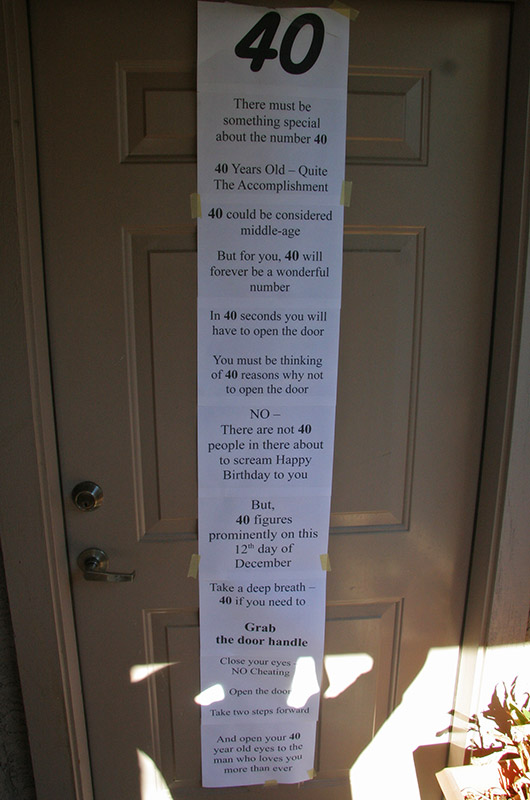 40
There must be
something special
about the number 40
40 Years Old – Quite
The Accomplishment
40 could be considered
middle-age
But for you, 40 will
forever be a wonderful
number
In 40 seconds you will
have to open the door
You must be thinking
of 40 reasons why not
to open the door
NO –
There are not 40
people in there about
to scream Happy
Birthday to you
But,
40 figures
prominently on this
12th day of
December
Take a deep breath –
40 if you need to
Grab
the door handle
Close your eyes –
NO Cheating
Open the door
Take two steps forward
And open your 40
year old eyes to the
man who loves you
more than ever